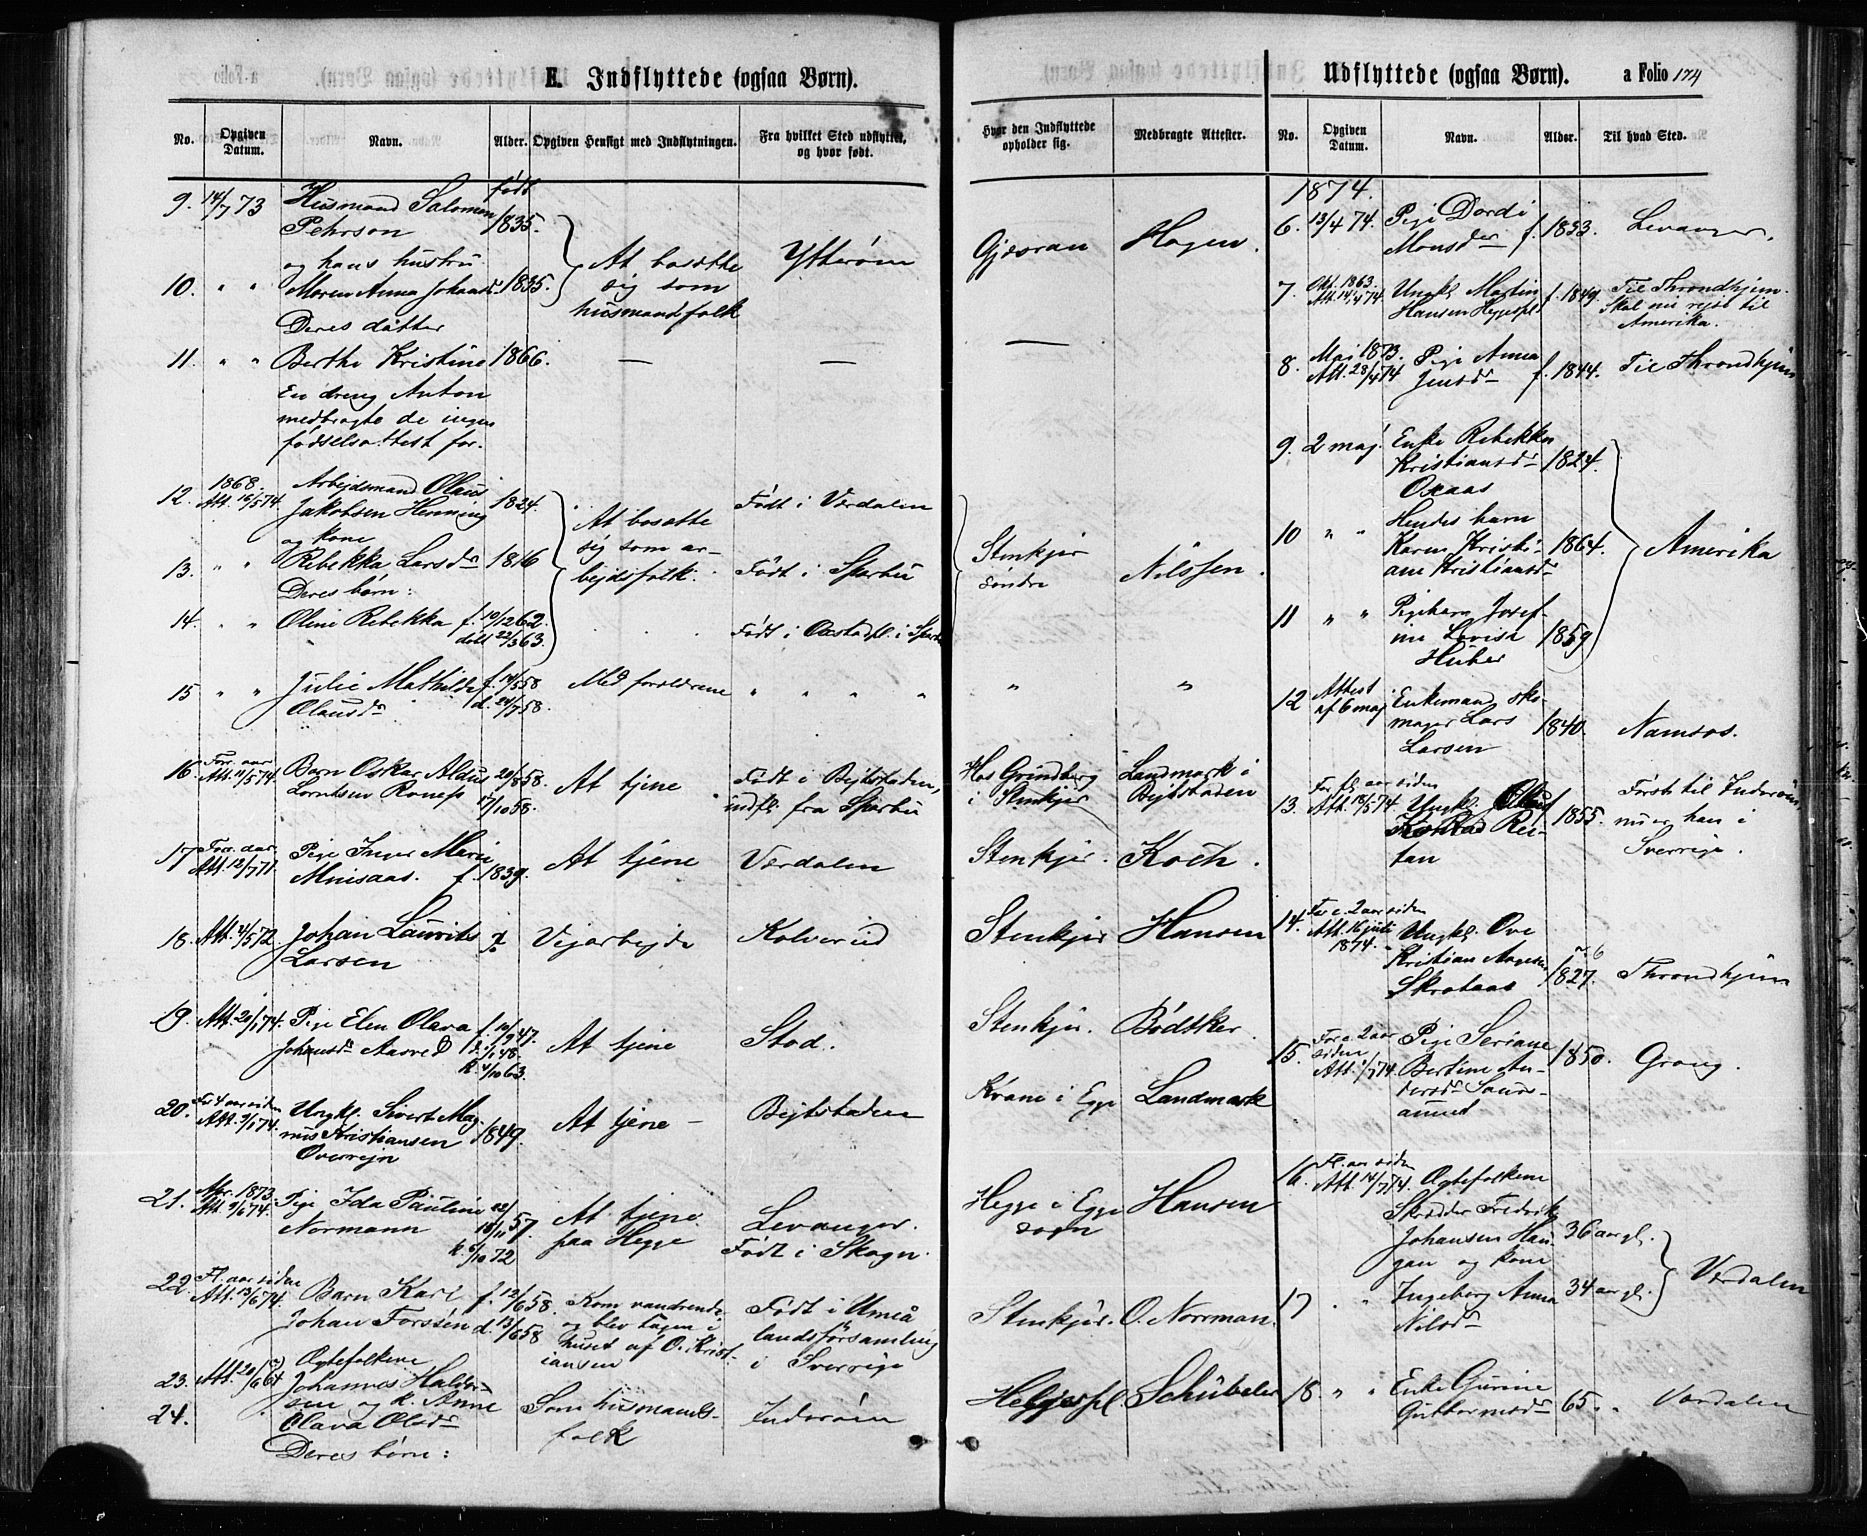 E. Indflyttede (ogsaa Børn).
No. Opgiven Datum. Navn. Alder. Opgiven Hensigt med Indflytningen. Fra hvilket Sted udflyttet, og hvor født.
Hvor den Indflyttede opholder sig. Medbragte Attester.
9. 14/7 73 Husmand Salomon Pehrson født 1835.
og hans hustru
10. " " Maren Anna 1835. At bosætte sig som husmandsfolk Ytterøen Gjæsran Hagen.
Deres datter
11. " " Berthe Kristine 1866. — — —
En dreng Anton
medbragte de ingen
fødselsattest for.
12. 1868. Att. 16/5 74. Arbejdsmand Olaus Jakobsen Henning 1824. At bosætte sig som arbejdsfolk. Født i Værdalen Stenkjær søndre Nilssen.
og kone
13. " " Rebekka Larsdr 1816 Født i Sparbu
Deres børn:
14. " " Oline Rebekka f. 10/12 62. døbt 22/3 63. Født i i Sparbu
15 " " Julie Mathilde Olausdr f. 14/5 58 d. 24/7 58. Med forældrene " " " " " "
16. Forr. aar Att. 11/5 74. Barn Oskar Lorntsen 20/8 58. 17/10 58. At tjene Født i Bejtstaden, indfl. fra Sparbu Hos Grindberg i Stenkjær Landmark i Bejtstaden
17 Forr. aar. Att. 12/7 71. Pige Inger Marie f. 1839. At tjene Værdalen Stenkjær. Koch.
18. Att. 4/5 72 Johan Laurits Larsen Vejarbejde Kolvereid Stenkjær Hansen
19. Att. 20/1 74. Pige Elen Olava Johansdr Aasved f. 10/9 47. d. 1/1 48. k. 4/10 63. At tjene Stod. Stenkjær. Bødtker.
20. For 4 aar siden Att. 9/1 74. Ungkj. Sivert Magnus Kristiansen Overrejn 1849. At tjene — Bejtstaden Kvam i Egge Landmark
21. Apr. 1873. Att. 9/6 74. Pige Ida Pauline Normann 18/11 57. k. 6/10 72 At tjene paa Hegge Levanger. Født i Skogn. Hegge i Egge sogn Hansen
22. Fl. aar siden Att. 13/6 74. Barn Karl Johan Forssén f. 12/6 58. d. 13/6 58 Kom vandrende og blev tagen i huset af O. Kristiansen Født i Umeå landsförsamling i Sverrige Stenkjær. O. Norrman.
23. Att. 20/6 64 Ægtefolkene Johannes
24. sen og k. Anne Olava Olsdr Som husmandsfolk Inderøen Helgespl. Schübeler
Deres børn:
Udflyttede (ogsaa Børn). a Folio 174
No. Opgiven Datum. Navn. Alder. Til hvad Sted.
1874.
6. 13/4 74. Pige Dordi Monsdr f. 1853. Levanger.
7. Okt. 1863. Att. 14/4 74. Ungk. Martin Hansen Heggespl. f. 1849. Til Throndhjem. Skal nu rejst til Amerika.
8. Maj 1873. Att. 28/4 74 Pige Anna Jensdr f. 1844. Til Throndhjem
9. 2 maj. Enke Rebekka Kristiansdr 1824.
10 " " Hendes barn Karen Kristiane Kristiansdr 1864. Amerika
11 " " Pigebarn Josefine Lovise Huber 1859
12 Attest af 6 maj Enkemand skomager Lars Larsen 1840. Namsos.
13. For fl. aar siden Att. 18/5 74. Ungk. Reitan 1855. Først til Inderøen, nu er han i Sverrige.
14. For c. 2 aar siden Att. 1874. Ungk. Ove Kristian Aagesen 1827. Throndhjem
15. For c. 2 aar siden Att. 74. Pige Seriane Bertine Andersdr 1850. Grong.
16. Fl. aar siden Att. 14/7 74. Ægtefolkene Skrædder Fredrik Johansen Haugan og kone 36 aar gl.
17 . " Ingeborg Anna Nilsdr 34 aar gl. Værdalen
18. " " Enke Gurine Guttormsdr 65. " Værdalen